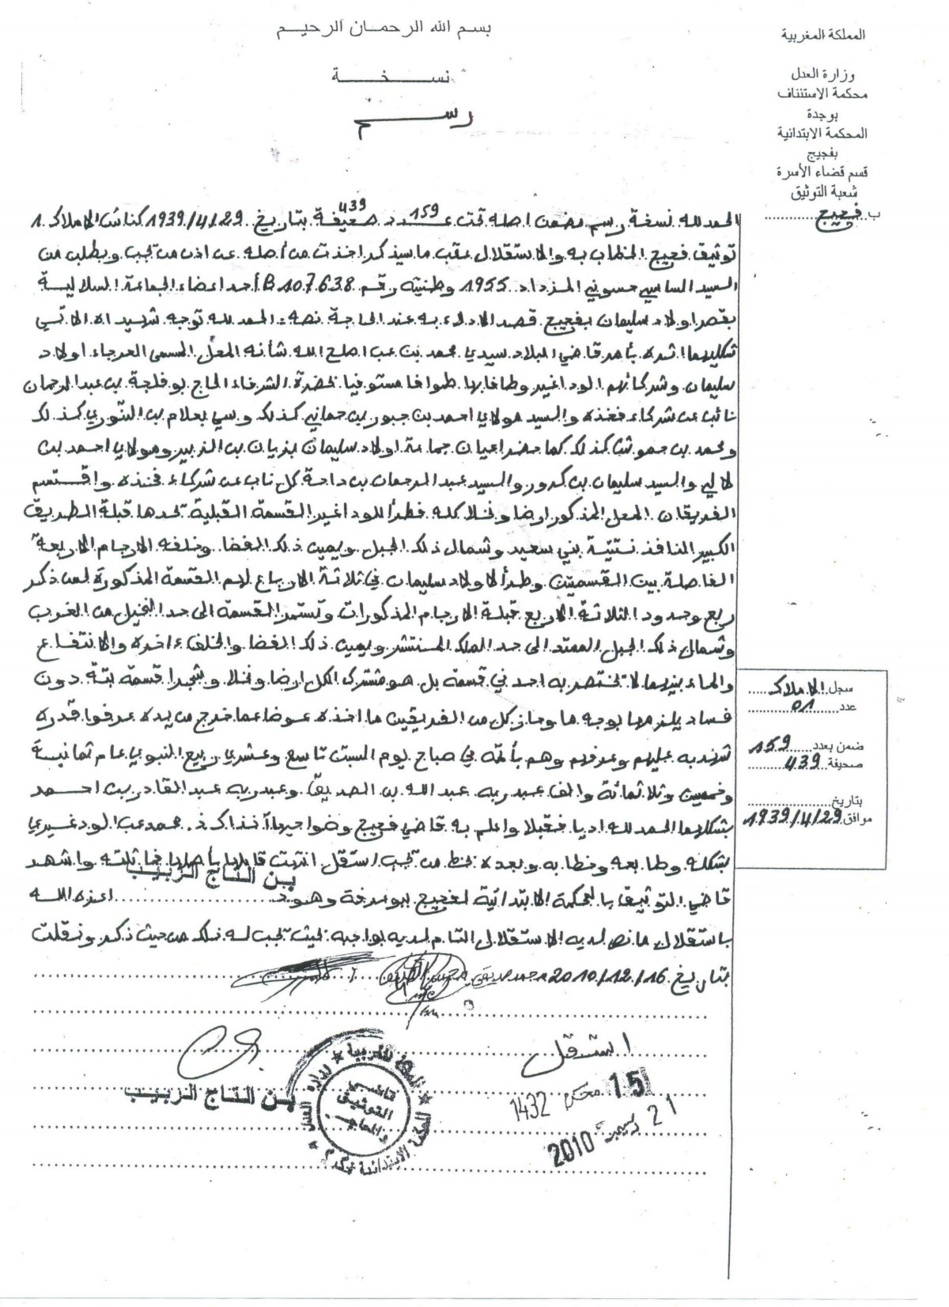 بسم الله الرحمان الرحيم
نسخة
رسم
المملكة المغربية
وزارة العدل
محكمة الاستئناف
بوجدة
المحكمة الابتدائية
بفجيج
قسم قضاء الأسرة
شعبة التوثيق
ب فجيج
الحمد لله نسخة رسم مضمن اصله تحت عدد 159 صحيفة 439 بتاريخ 1939/4/29 كناش الاملاك 1
توثيق فجيج الخطاب به والاستقلال عقب ما سيذكر اخذت من أصله عن اذن من تجب وبطلب من
السيد الساسي حسوني المزداد 1955 وطنيته رقم B107638 أحد اعضاء الجماعة السلالية
بقصر اولاد سليمان بفجيج قصد الادلاء به عند الحاجة نصه: الحمد لله توجه شهيداه الاتي
شكلهما اثره بأمر قاضي البلاد سيدي محمد بن عب اصلح الله شأنه المعل المسمى العرجاء اولاد
سليمان وشركائهم الوداغير وطافا بها طوافا مستوفيا بحضرة الشرفاء الحاج بوفلجة بن عبد الرحمان
نائب عن شركاء فخذه والسيد مولاي احمد بن جبور بن حماني كذلك وسي بعلام بن النوري كذلك
ومحمد بن حمو كذلك كما حضر اعيان جماعة اولاد سليمان بزيان بن الزبير ومولاي احمد بن
لالي والسيد سليمان بن كرور والسيد عبد الرحمان بن داحة كل ناب عن شركاء فخذه واقتسم
الفريقان المحل المذكور ارضا ونخلا كله فطرأ للوداغير القسمة القبلية تحدها قبلة الطريق
الكبير النافذ بني سعيد وشمال ذلك الجبل ويمين ذلك الفضا وخلفه الارجام الاربعة
الفاصلة بين القسمتين وطرأ لاولاد سليمان في ثلاثة الارباع لهم القسمة المذكورة لمن ذكر
ربع وحدود الثلاثة الاربع قبلة الارجام المذكورات وتستمر القسمة الى حد النخيل من الغرب
وشمال ذلك الجبل الممتد الى حد الملك المنتشر ويمين ذلك الفضا والخلف ءاخره والانتفاع
والماء بينهما لا تختصر به احد في قسمة بل هو مشترك الكل ارضا ونخلا وشجرا قسمة بتة دون
فساد يلزمها بوجه ما وحاز كل من الفريقين ما اخذه عوضا عما خرج من يده عرفوا قدره
شهد به عليهم وعرفهم وهم بأتمه في صباح يوم السبت تاسع وعشري ربيع النبوي عام ثمانية
وخمسين وثلاثمائة والف عبد ربه عبد الله بن الصديق وعبد ربه عبد القادر بن احمد
بشكلهما الحمد لله اديا فقبلا واعلم به قاضي فجيج وضواحيها آنذاك محمد عب الودغيري
بشكله وطابعه وخطابه وبعده بخط من تجب استقل انتهت قابلها بأصلها فماثلته واشهد
قاضي التوثيق بالمحكمة الابتدائية لفجيج بوعرفة وهو بن التاج الزبيب اعزه الله
باستقلال ما نص لديه الاستقلال التام لديه بواجبه بحيث تجب له ذلك من حيث ذكر ونقلت
بتاريخ 2010/12/16
سجل الاملاك
عدد 01
ضمن بعدد 159
صحيفة 439
بتاريخ
موافق 1939/4/29
استقل
15 محرم 1432
21 دسمبر 2010
بن التاج الزبيب
قاضي
التوثيق